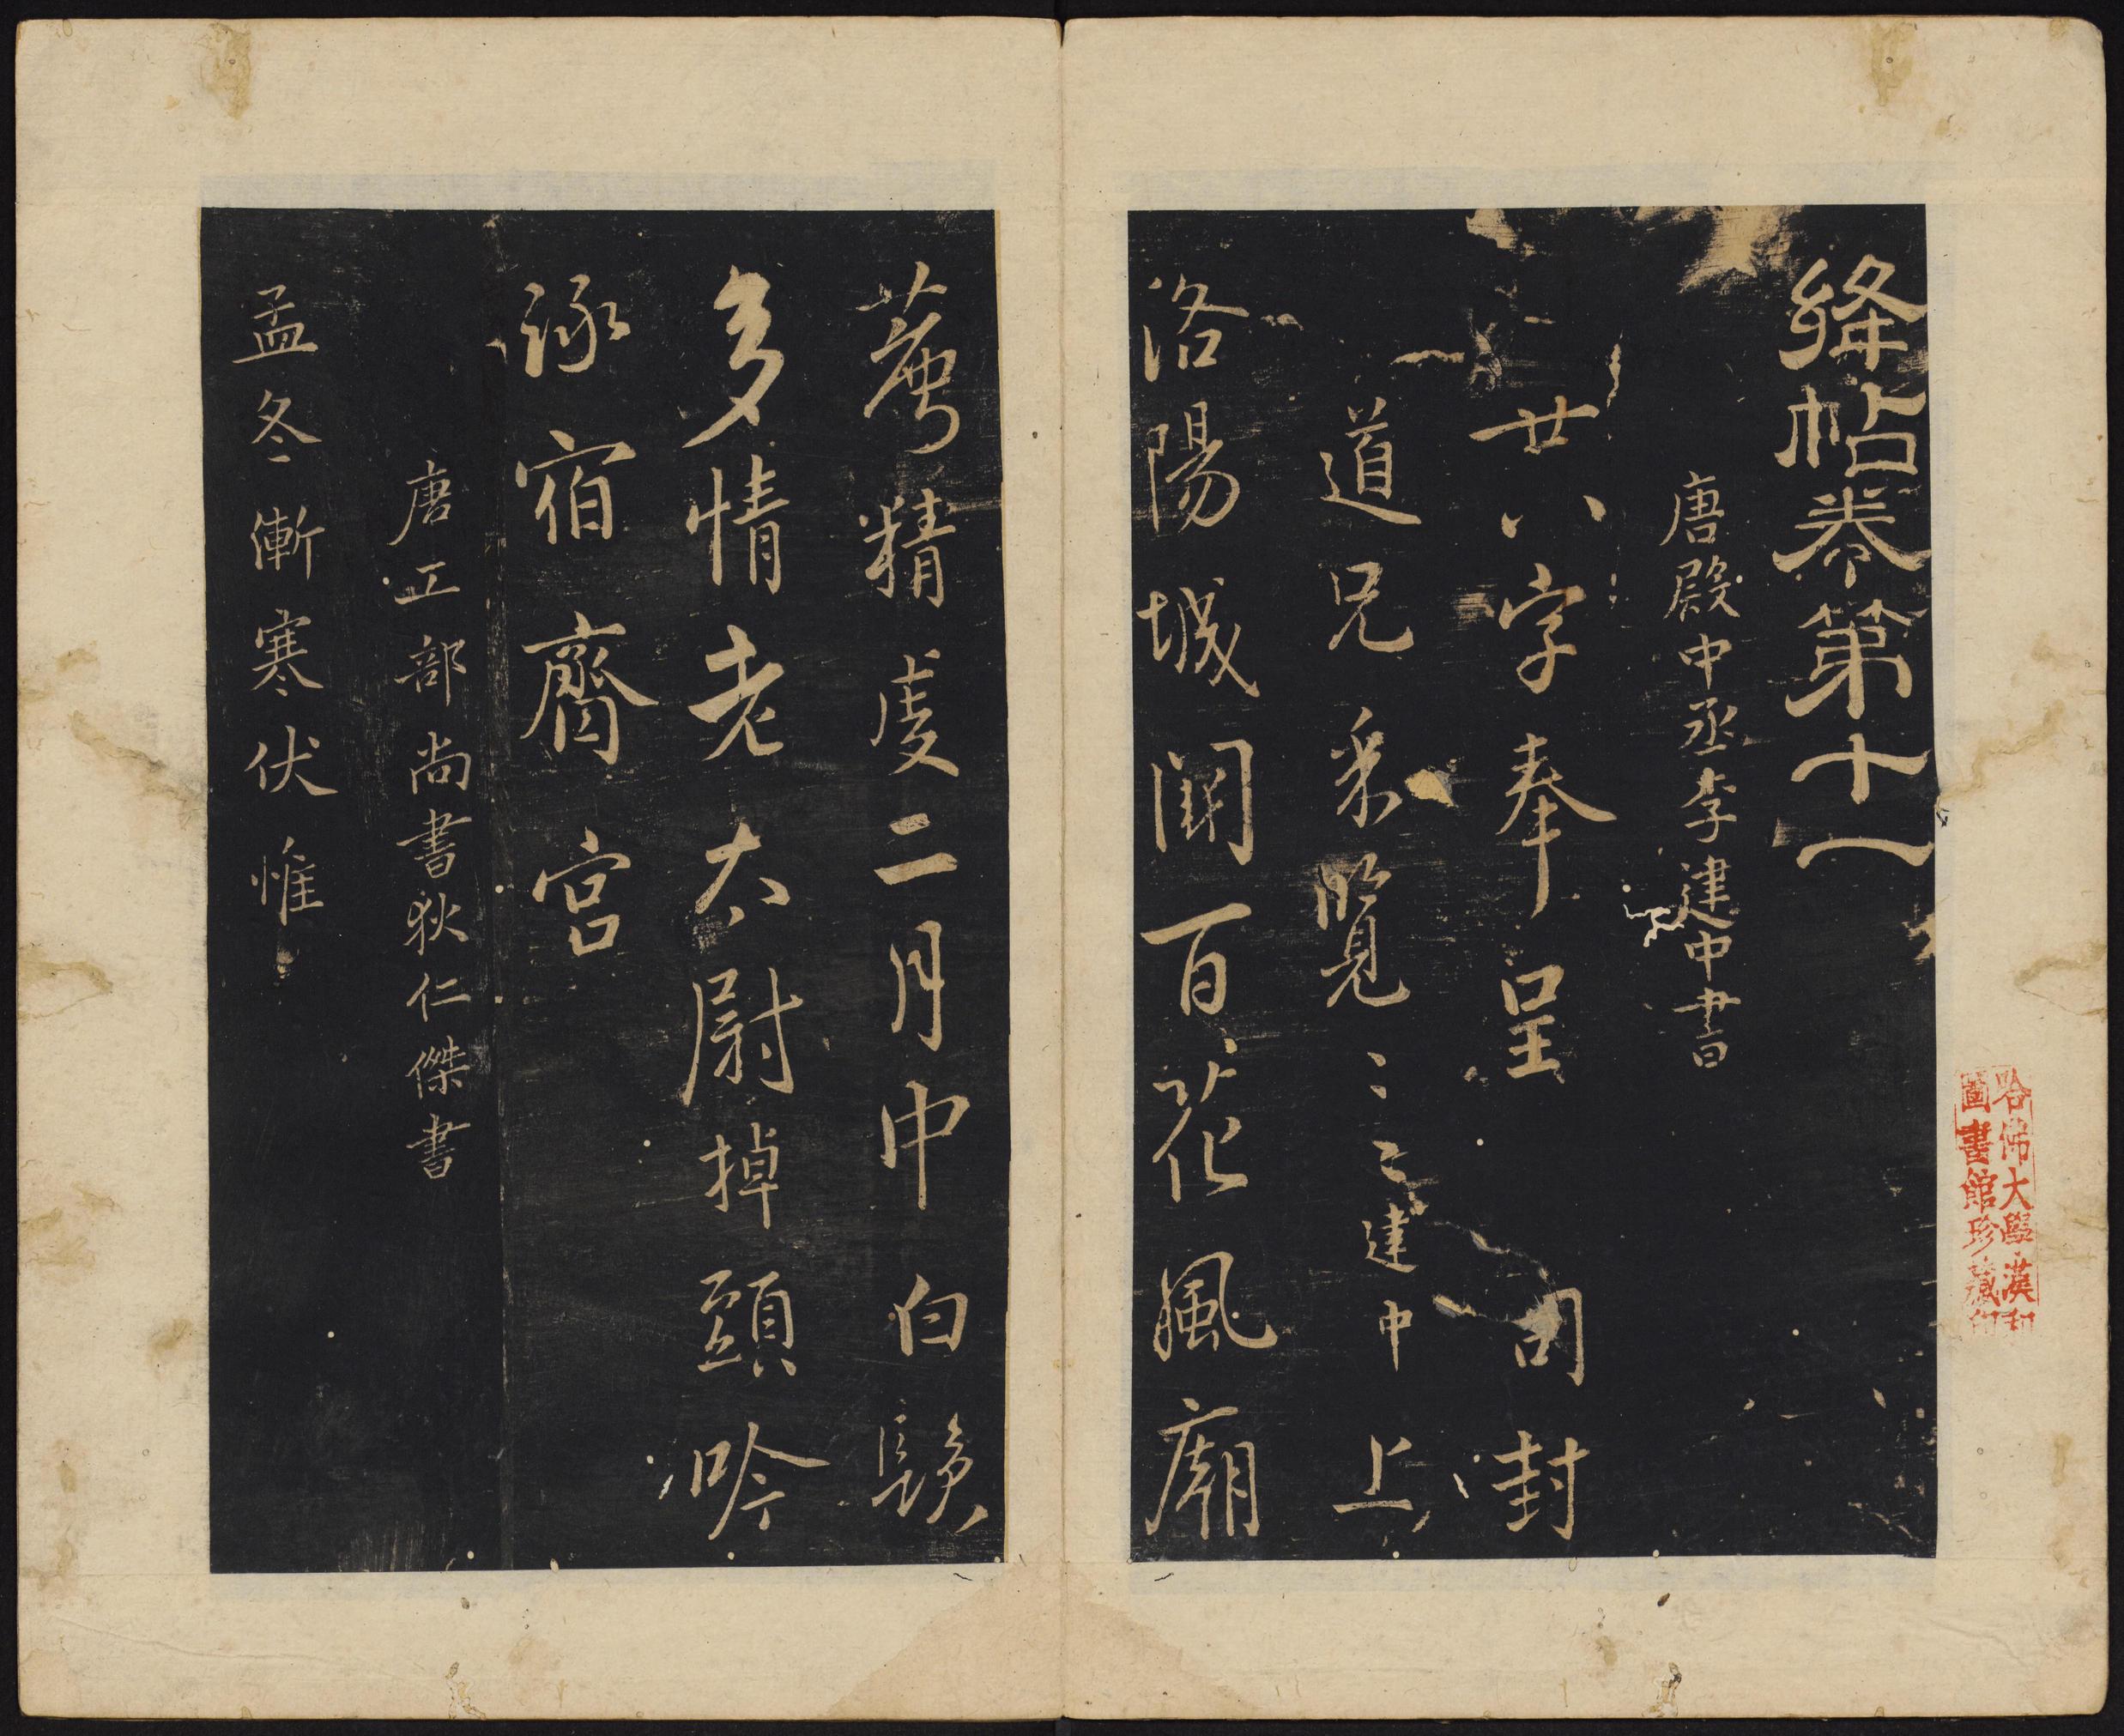 絳帖卷第十一
唐殿中丞李建中書
廿八字奉呈 司封
道兄采覽〻〻建中上
洛陽城闕百花風廟
精虔二月中白鬚
多情老太尉掉頭吟
詠宿齋宮
唐工部尚書狄仁傑書
孟冬漸寒伏惟
哈佛大學漢和
圖書館珍藏印